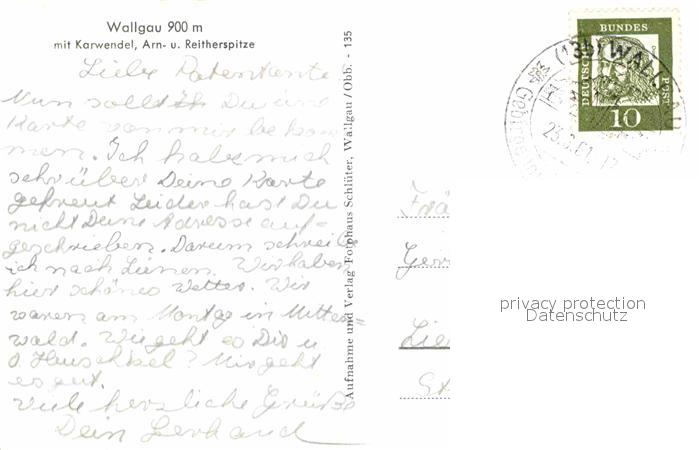 Wallgau 900 m
mit Karwendel, Arn- u. Reitherspitze
Liebe Patentante
Nun sollst Du eine
Karte von mir bekom
men. Ich habe mich
sehr über Deine Karte
gefreut Leider hast Du
nicht Deine Adresse auf-
geschrieben. Darum schreibe
ich nach Lienen. Wir haben
hier schönes Wetter. Wir
waren am Montag in Mitten
wald. Wie geht es Dir u
O. ? Mir geht
es gut.
Viele herzliche Grüße
Dein Gerhard
Aufnahme und Verlag Fotohaus Schlüter, Wallgau / Obb. - 135
DEUTSCHE
BUNDES
POST
10
(13b) WALLGAU
Lie
privacy protection
Datenschutz